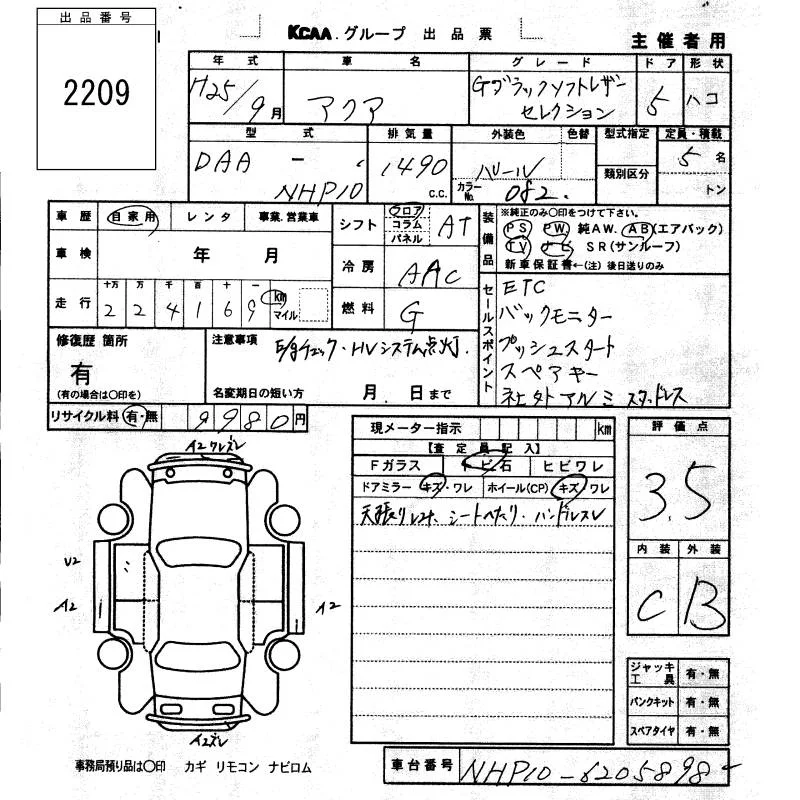 出品番号
2209
KCAA.グループ 出品票
主催者用
年式 車名 グレード ドア 形状
H25/9月 アクア Gブラックソフトレザー
セレクション 5 ハコ
型式 排気量 外装色 色替 型式指定 定員・積載
DAA - NHP10 1490 c.c. パール カラーNo. 082. 類別区分 5名
トン
車歴 自家用 レンタ 事業.営業車
車検 年 月
走行 十万 万 千 百 十 一
224169 km マイル
シフト フロア コラム パネル AT
冷房 AAC
燃料 G
装備品
※純正のみ〇印をつけて下さい。
PS PW 純AW. AB(エアバック)
TV ナビ SR(サンルーフ)
新車保証書←(注) 後日送りのみ
セールスポイント
ETC
バックモニター
プッシュスタート
スペアキー
社外アルミ スタッドレス
修復歴 箇所
有
(有の場合は〇印を)
注意事項
E/gチェック・HVシステム点灯.
名変期日の短い方 月 日まで
リサイクル料 有・無 9980円
現メーター指示 km
【査定員記入】
Fガラス トビ石 ヒビワレ
ドアミラー キズ・ワレ ホイール(CP) キズ/ワレ
シートヘタリ・ハンドルスレ
評価点
3.5
内装 外装
C B
ジャッキ工具 有・無
パンクキット 有・無
スペアタイヤ 有・無
A2 ワレズレ
U2
A2
A2
A2ズレ
事務局預り品は〇印 カギ リモコン ナビロム
車台番号 NHP10-6205898